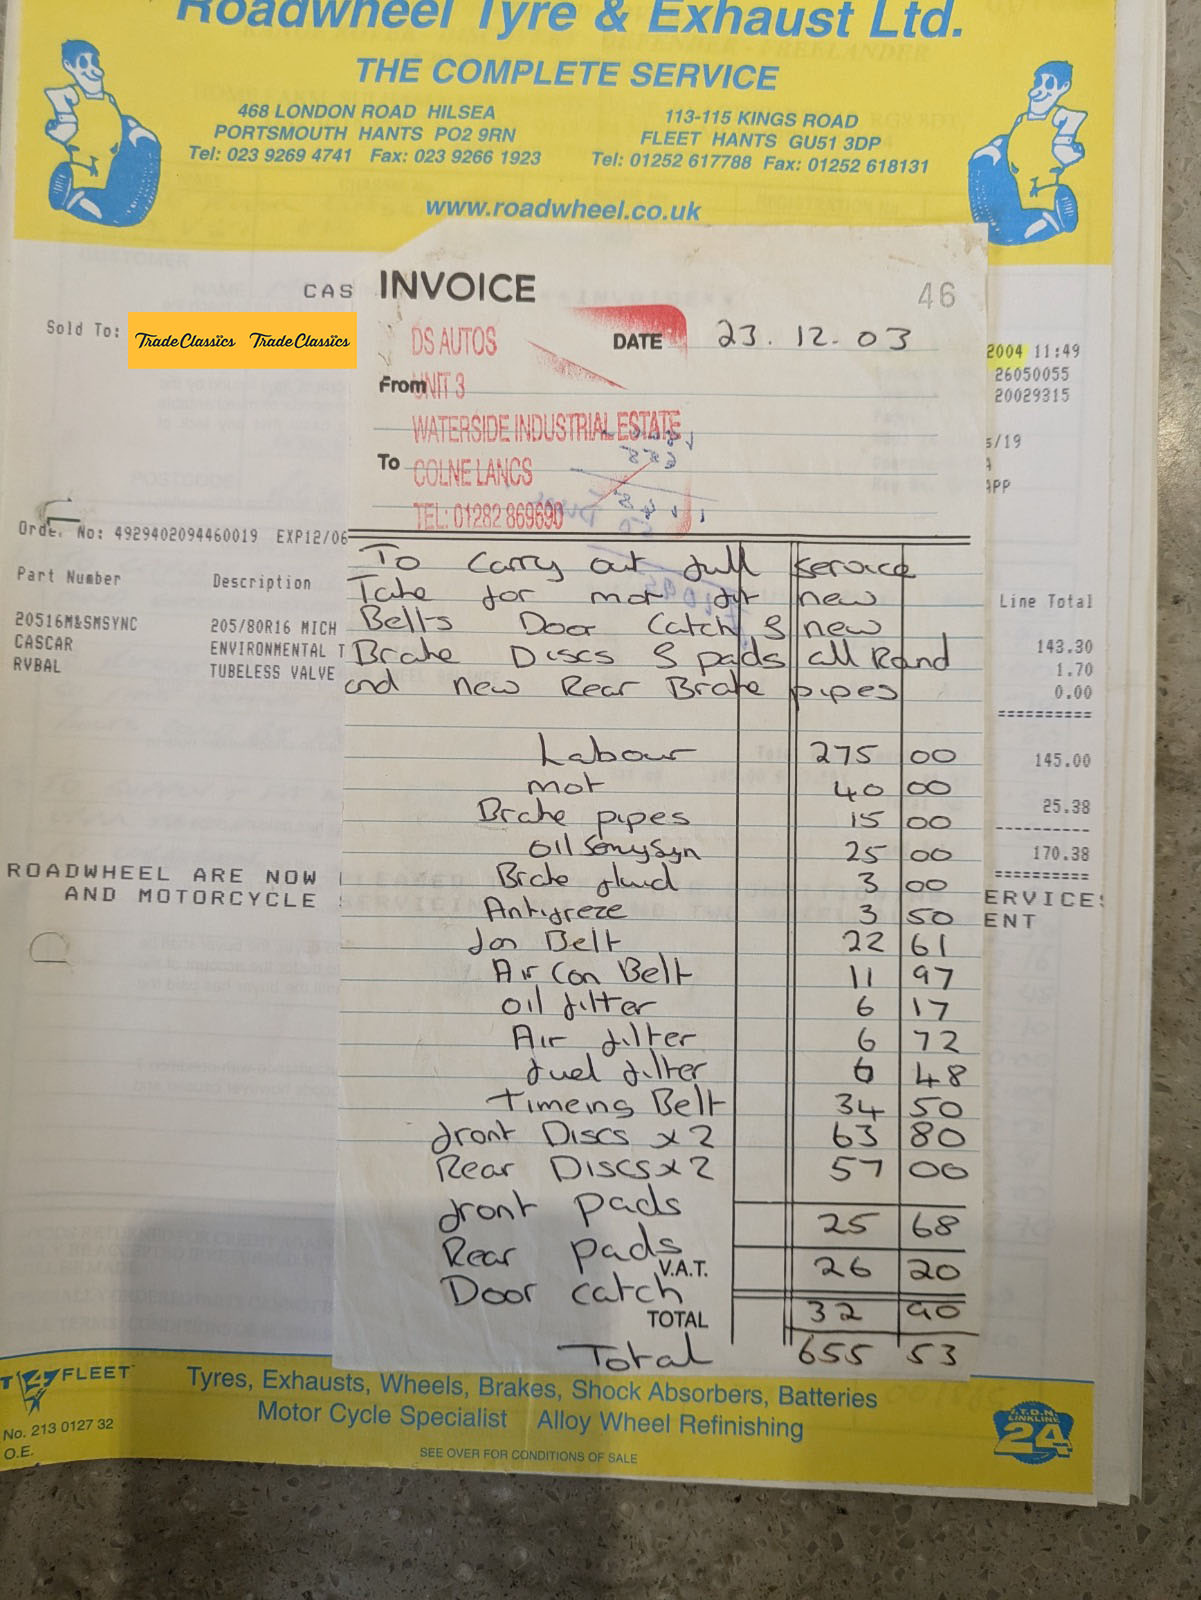 Roadwheel Tyre & Exhaust Ltd.
THE COMPLETE SERVICE
468 LONDON ROAD HILSEA
PORTSMOUTH HANTS PO2 9RN
Tel: 023 9269 4741 Fax: 023 9266 1923
113-115 KINGS ROAD
FLEET HANTS GU51 3DP
Tel: 01252 617788 Fax: 01252 618131
www.roadwheel.co.uk
CAS
Sold To:
TradeClassics TradeClassics
2004 11:49
26050055
20029315
s/19
A
APP
Order No: 4929402094460019 EXP12/06
Part Number Description Line Total
20516M&SMSYNC 205/80R16 MICH 143.30
CASCAR ENVIRONMENTAL T 1.70
RVBAL TUBELESS VALVE 0.00
145.00
25.38
170.38
ROADWHEEL ARE NOW ERVICES
AND MOTORCYCLE ENT
INVOICE
46
DS AUTOS
DATE 23.12.03
From UNIT 3
WATERSIDE INDUSTRIAL ESTATE
To COLNE LANCS
TEL: 01282 869690
To Carry out full service
Take for mot fit new
Belts Door Catch & new
Brake Discs & pads all Round
and new Rear Brake pipes
Labour 275 00
mot 40 00
Brake pipes 15 00
oil SemySyn 25 00
Brake fluid 3 00
Antifreze 3 50
fan Belt 22 61
Air Con Belt 11 97
oil filter 6 17
Air filter 6 72
fuel filter 6 48
Timeing Belt 34 50
front Discs x2 63 80
Rear Discs x2 57 00
front pads 25 68
Rear pads 26 20
V.A.T.
Door catch 32 90
TOTAL
Total 655 53
FLEET
No. 213 0127 32
O.E.
Tyres, Exhausts, Wheels, Brakes, Shock Absorbers, Batteries
Motor Cycle Specialist Alloy Wheel Refinishing
SEE OVER FOR CONDITIONS OF SALE
LINKLINE
24